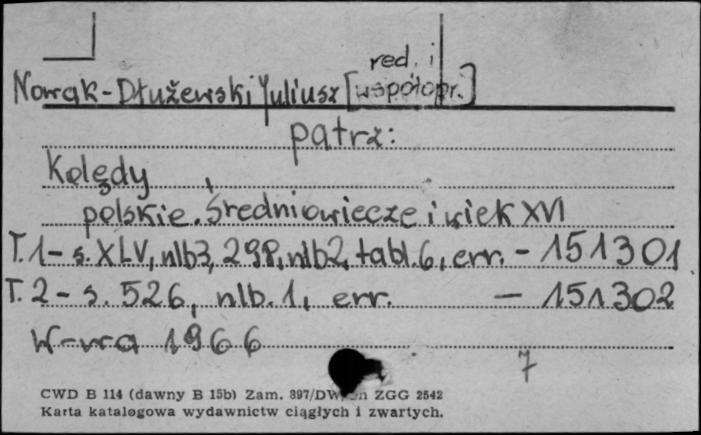 red. i
Nowak-Dłużewski Juliusz [współopr.]
patrz:
Kolędy
polskie. Średniowiecze i wiek XVI
T. 1 - s. XLV, nlb 3, 298, nlb 2, tabl. 6, err. - 151301
T. 2 - s. 526, nlb. 1, err. - 151302
W-wa 1966
7
CWD B 114 (dawny B 15b) Zam. 397/DW ZGG 2542
Karta katalogowa wydawnictw ciągłych i zwartych.